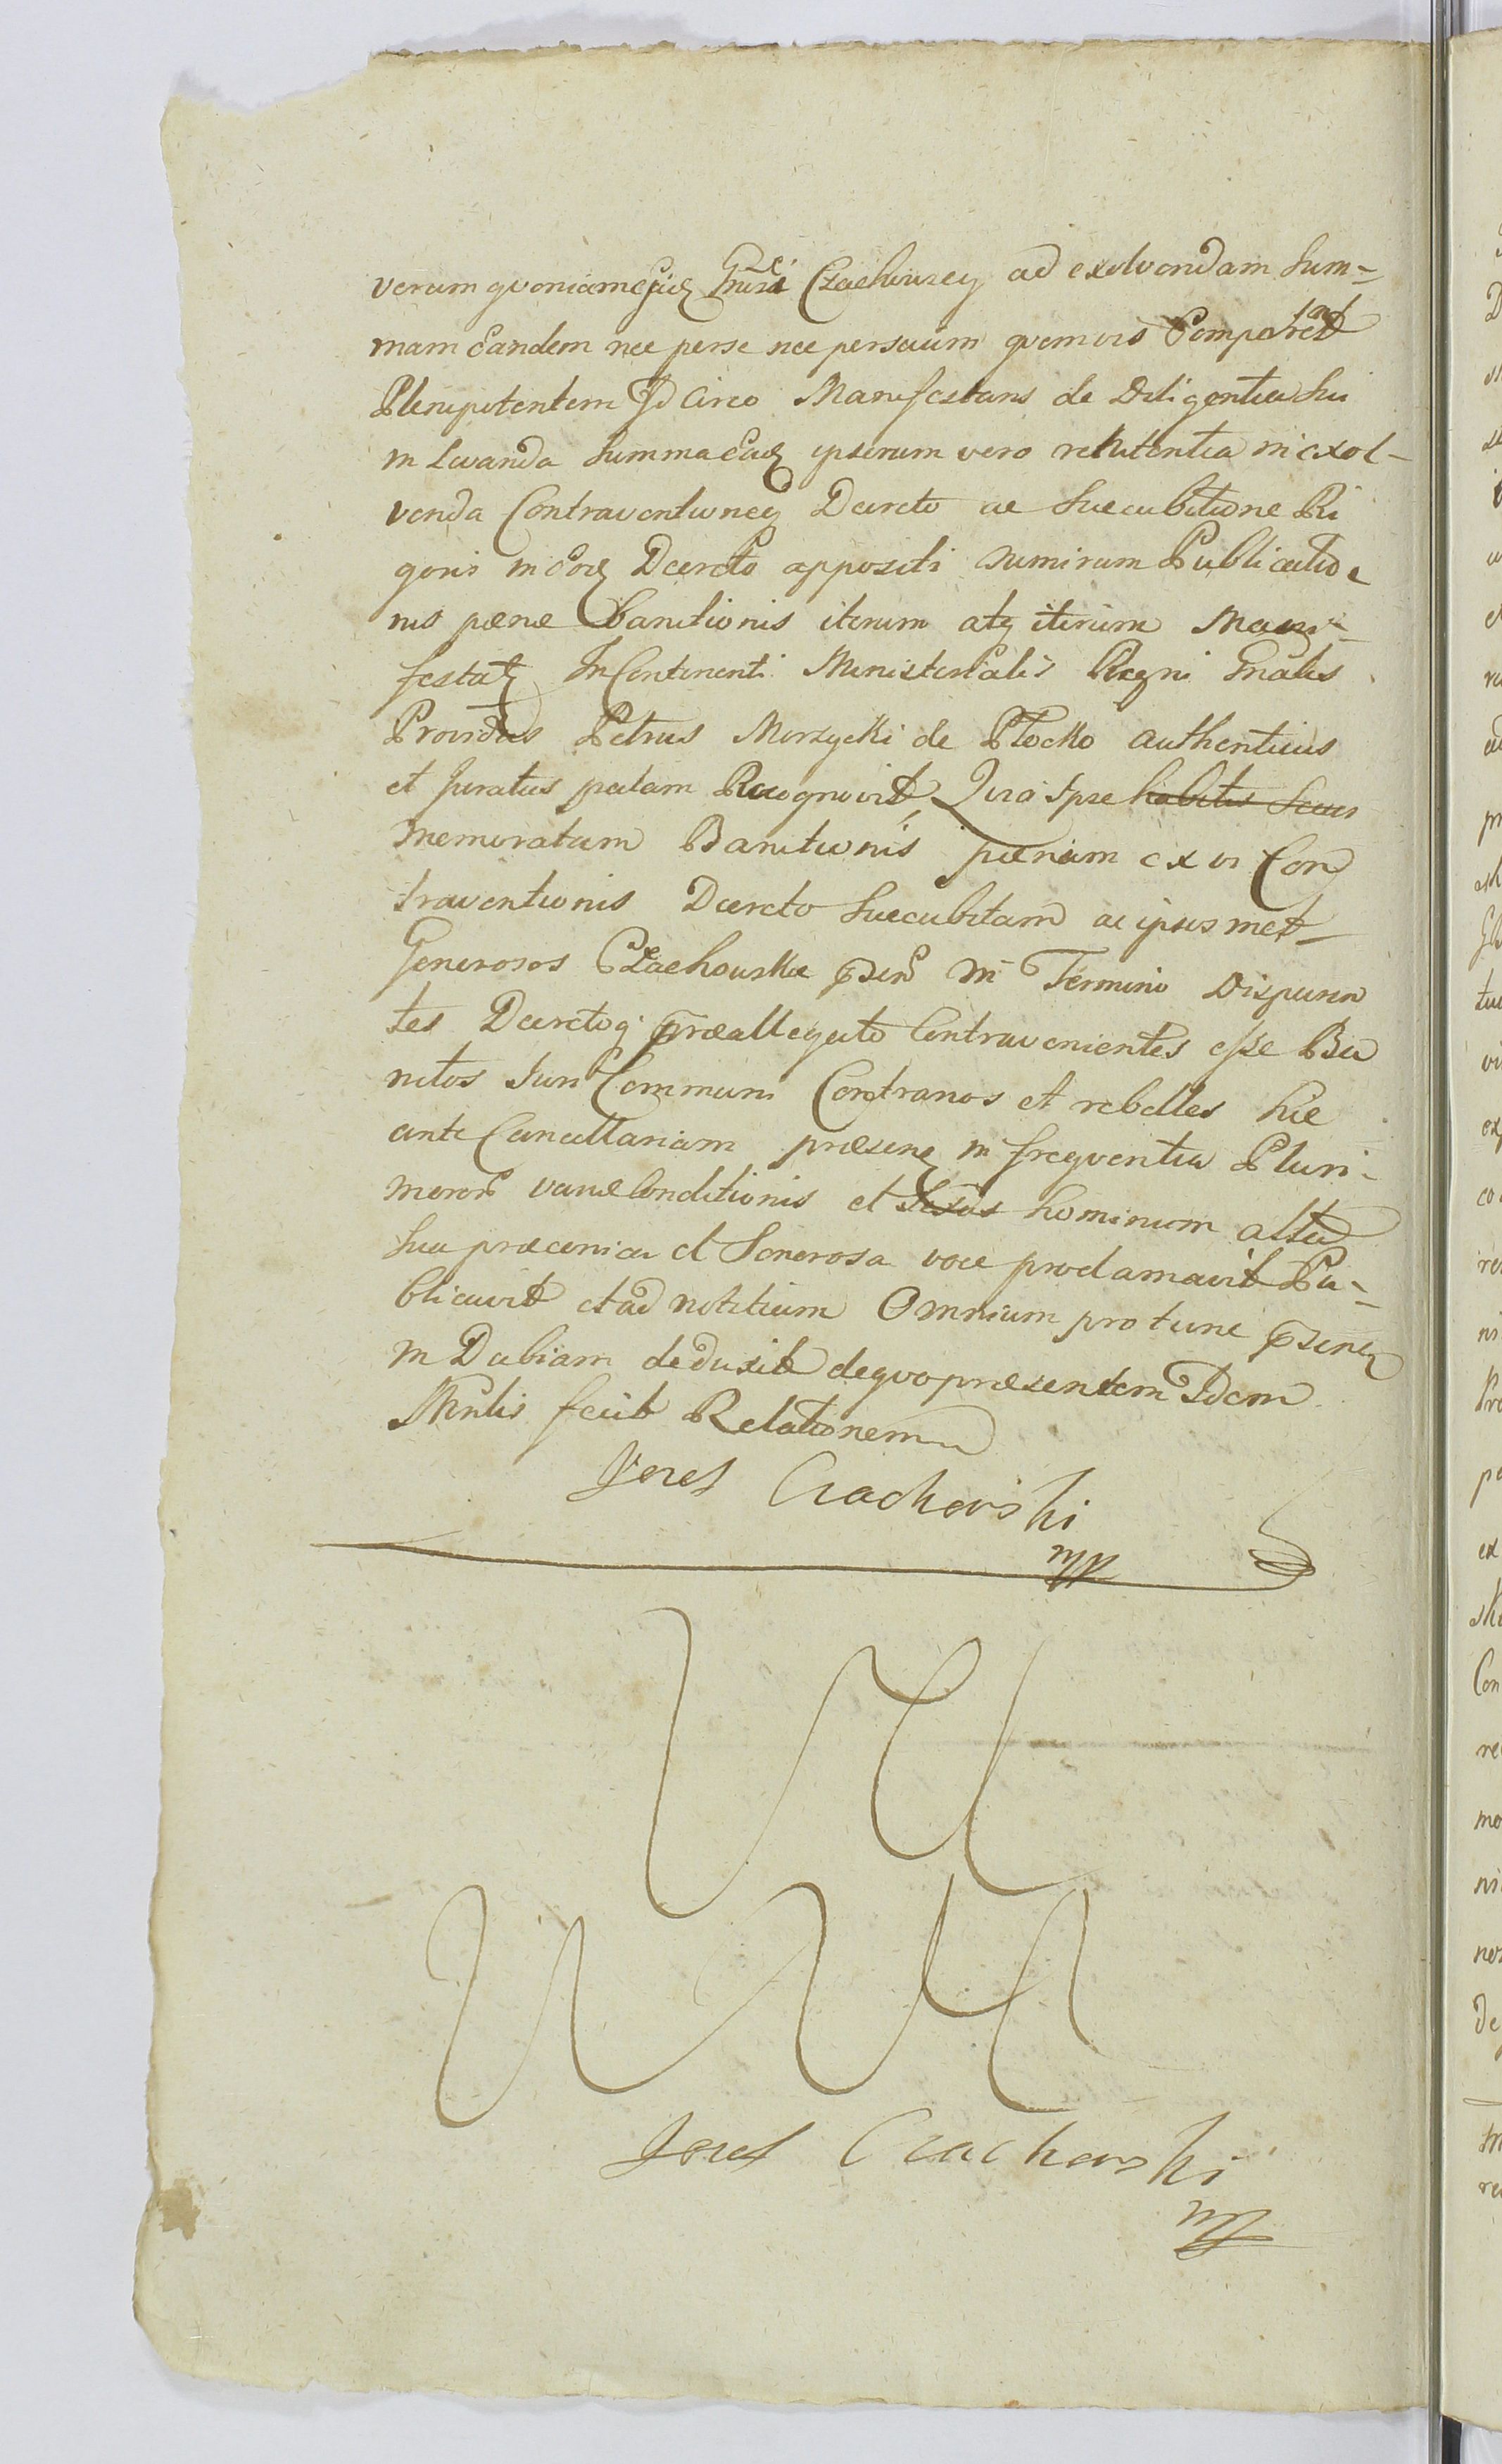 verum qvoniam ejusq Gnrsi Czachowscy ad exolvendam Sum-
mam Eandem nec per se nec per suum qvemvis Comparent
Plenipotentem Id Circo Manifestans de Diligentia sui
in Levanda Summa Eadq ipsorum vero retutentia in exol-
venda Contraventioneq Decreto ac Succubitione Ri
goris in Eodq Decreto appositi nimirum Publicatio
nis pænæ Banitionis iterum atq iterum Mani-
festatq In Continenti Ministerialis Regni Gnalis
Providus Petrus Morzycki de Płocko authenticus
et Juratus palam Recognovit Qvia Ipse habitis suus
memoratam Banitionis pænam ex vi Con
traventionis Decreto Succubitam ac ipsosmet
Generosos Czachowskie psen in Termino Disparen
tes Decretoq præallegato Contravenientes esse Ba
nitos Juri Communi Contrarios et rebelles hic
ante Cancellariam præsenq in freqventia Pluri-
moron variæ Conditionis et Sexus hominum alta
sua præconica et Sonorosa voce proclamavit Pu-
blicavit et ad notitiam Omnium pro tunc psenq
in Dubiam deduxit de qvo præsentem Idem
Mnlis fecit Relationem
Josef Czachowski
mp
Josef Czachowski
mp